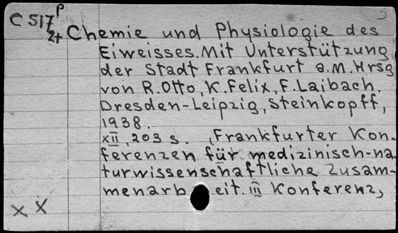 C 517 p
2+ Chemie und Physiologie des
Eiweisses. Mit Unterstützung
der Stadt Frankfurt a. M. Hrsg
von R. Otto, K. Felix, F. Laibach.
Dresden-Leipzig, Steinkopff,
1938.
XII, 203 s. , Frankfurter Kon-
ferenzen für medizinisch-na-
turwissenschaftliche Zusam-
menarb eit. III Konferenz,
x x